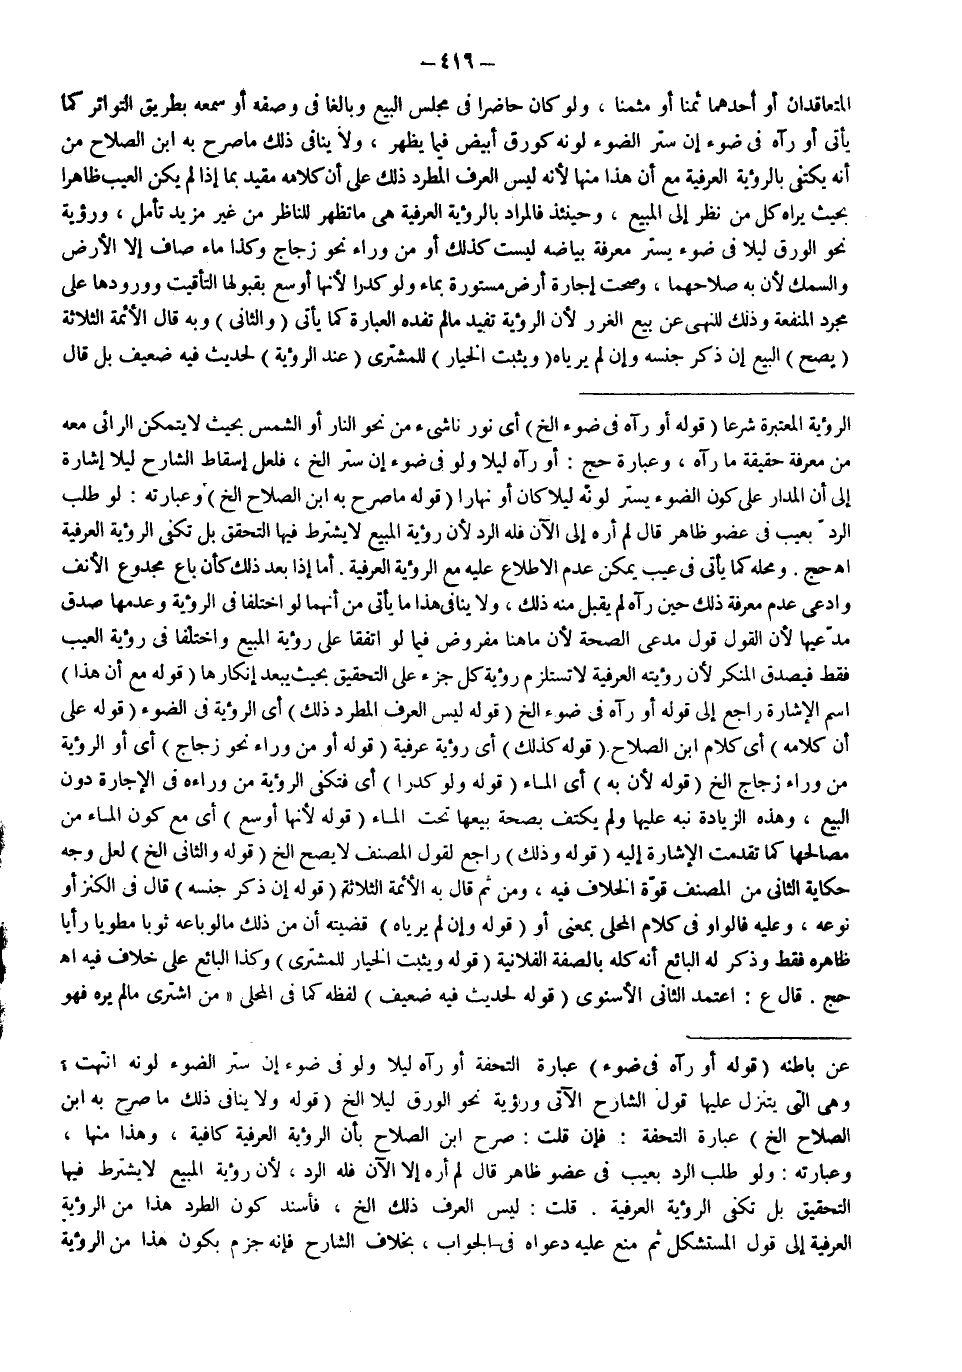 – ٤١٦ –
المتعاقدان أو أحدهما ثمنا أو مثمنا ، ولو كان حاضرا فى مجلس البيع وبالغا فى وصفه أو سمعه بطريق التواتر كما
يأتى أو رآه فى ضوء إن ستر الضوء لونه كورق أبيض فيما يظهر ، ولا ينافى ذلك ماصرح به ابن الصلاح من
أنه يكتفى بالرؤية العرفية مع أن هذا منها لأنه ليس العرف المطرد ذلك على أن كلامه مقيد بما إذا لم يكن العيب ظاهرا
بحيث يراه كل من نظر إلى المبيع ، وحينئذ فالمراد بالرؤية العرفية هى ماتظهر للناظر من غير مزيد تأمل ، ورؤية
نحو الورق ليلا فى ضوء يستر معرفة بياضه ليست كذلك أو من وراء نحو زجاج وكذا ماء صاف إلا الأرض
والسمك لأن به صلاحهما ، وصحت إجارة أرض مستورة بماء ولو كدرا لأنها أوسع بقبولها التأقيت وورودها على
مجرد المنفعة وذلك للنهى عن بيع الغرر لأن الرؤية تفيد مالم تفده العبارة كما يأتى ( والثانى ) وبه قال الأئمة الثلاثة
( يصح ) البيع إن ذكر جنسه وإن لم يرياه ( ويثبت الخيار ) للمشترى ( عند الرؤية ) لحديث فيه ضعيف بل قال
الرؤية المعتبرة شرعا ( قوله أو رآه فى ضوء الخ ) أى نور ناشىء من نحو النار أو الشمس بحيث لايتمكن الرائى معه
من معرفة حقيقة ما رآه ، وعبارة حج : أو رآه ليلا ولو فى ضوء إن ستر الخ ، فلعل إسقاط الشارح ليلا إشارة
إلى أن المدار على كون الضوء يستر لونه ليلا كان أو نهارا ( قوله ماصرح به ابن الصلاح الخ ) وعبارته : لو طلب
الردّ بعيب فى عضو ظاهر قال لم أره إلى الآن فله الرد لأن رؤية المبيع لايشترط فيها التحقق بل تكفى الرؤية العرفية
اه حج . ومحله كما يأتى فى عيب يمكن عدم الاطلاع عليه مع الرؤية العرفية . أما إذا بعد ذلك كأن باع مجدوع الأنف
وادعى عدم معرفة ذلك حين رآه لم يقبل منه ذلك ، ولا ينافى هذا ما يأتى من أنهما لو اختلفا فى الرؤية وعدمها صدق
مدّعيها لأن القول قول مدعى الصحة لأن ماهنا مفروض فيما لو اتفقا على رؤية المبيع واختلفا فى رؤية العيب
فقط فيصدق المنكر لأن رؤيته العرفية لاتستلزم رؤية كل جزء على التحقيق بحيث يبعد إنكارها ( قوله مع أن هذا )
اسم الإشارة راجع إلى قوله أو رآه فى ضوء الخ ( قوله ليس العرف المطرد ذلك ) أى الرؤية فى الضوء ( قوله على
أن كلامه ) أى كلام ابن الصلاح . ( قوله كذلك ) أى رؤية عرفية ( قوله أو من وراء نحو زجاج ) أى أو الرؤية
من وراء زجاج الخ ( قوله لأن به ) أى الماء ( قوله ولو كدرا ) أى فتكفى الرؤية من وراءه فى الإجارة دون
البيع ، وهذه الزيادة نبه عليها ولم يكتف بصحة بيعها تحت الماء ( قوله لأنها أوسع ) أى مع كون الماء من
مصالحها كما تقدمت الإشارة إليه ( قوله وذلك ) راجع لقول المصنف لايصح الخ ( قوله والثانى الخ ) لعل وجه
حكاية الثانى من المصنف قوّة الخلاف فيه ، ومن ثم قال به الأئمة الثلاثة ( قوله إن ذكر جنسه ) قال فى الكنز أو
نوعه ، وعليه فالواو فى كلام المحلى بمعنى أو ( قوله وإن لم يرياه ) قضيته أن من ذلك مالوباعه ثوبا مطويا رأيا
ظاهره فقط وذكر له البائع أنه كله بالصفة الفلانية ( قوله ويثبت الخيار للمشترى ) وكذا البائع على خلاف فيه اه
حج . قال ع : اعتمد الثانى الأسنوى ( قوله لحديث فيه ضعيف ) لفظه كما فى المحلى « من اشترى مالم يره فهو
عن باطنه ( قوله أو رآه فى ضوء ) عبارة التحفة أو رآه ليلا ولو فى ضوء إن ستر الضوء لونه انتهت ؟
وهى التى يتنزل عليها قول الشارح الآتى ورؤية نحو الورق ليلا الخ ( قوله ولا ينافى ذلك ما صرح به ابن
الصلاح الخ ) عبارة التحفة : فإن قلت : صرح ابن الصلاح بأن الرؤية العرفية كافية ، وهذا منها ،
وعبارته : ولو طلب الرد بعيب فى عضو ظاهر قال لم أره إلا الآن فله الرد ، لأن رؤية المبيع لايشترط فيها
التحقيق بل تكفى الرؤية العرفية . قلت : ليس العرف ذلك الخ ، فأسند كون الطرد هذا من الرؤية
العرفية إلى قول المستشكل ثم منع عليه دعواه فى الجواب ، بخلاف الشارح فإنه جزم بكون هذا من الرؤية